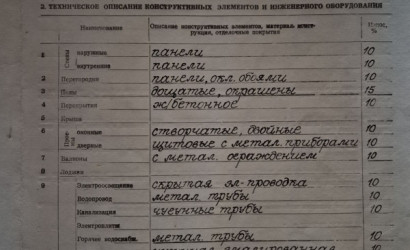 2. ТЕХНИЧЕСКОЕ ОПИСАНИЕ КОНСТРУКТИВНЫХ ЭЛЕМЕНТОВ И ИНЖЕНЕРНОГО ОБОРУДОВАНИЯ
Наименование Описание конструктивных элементов, материал, конструкция, отделочные покрытия Износ, %
1 Стены наружные панели 10
внутренние панели 10
2 Перегородки панели, окл. обоями 10
3 Полы дощатые, окрашены 15
4 Перекрытия ж/бетонное 10
5 Крыша
6 оконные створчатые, двойные 10
дверные щитовые с метал. приборами 10
7 Балконы с метал. ограждением 10
8 Лоджии
9 Электроосвещение скрытая эл-проводка 10
Водопровод метал. трубы 10
Канализация чугунные трубы 10
Электроплиты
Горячее водоснабж. метал. трубы 10